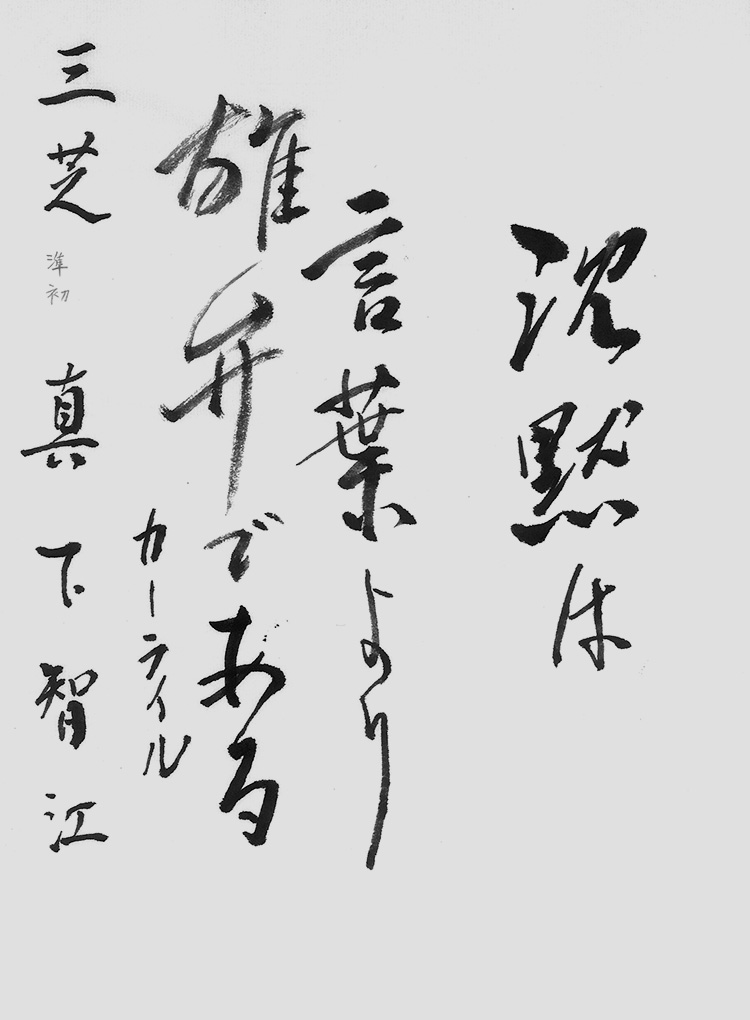 沈黙は
言葉より
雄弁である
カーライル
三芝 準初 真下智江